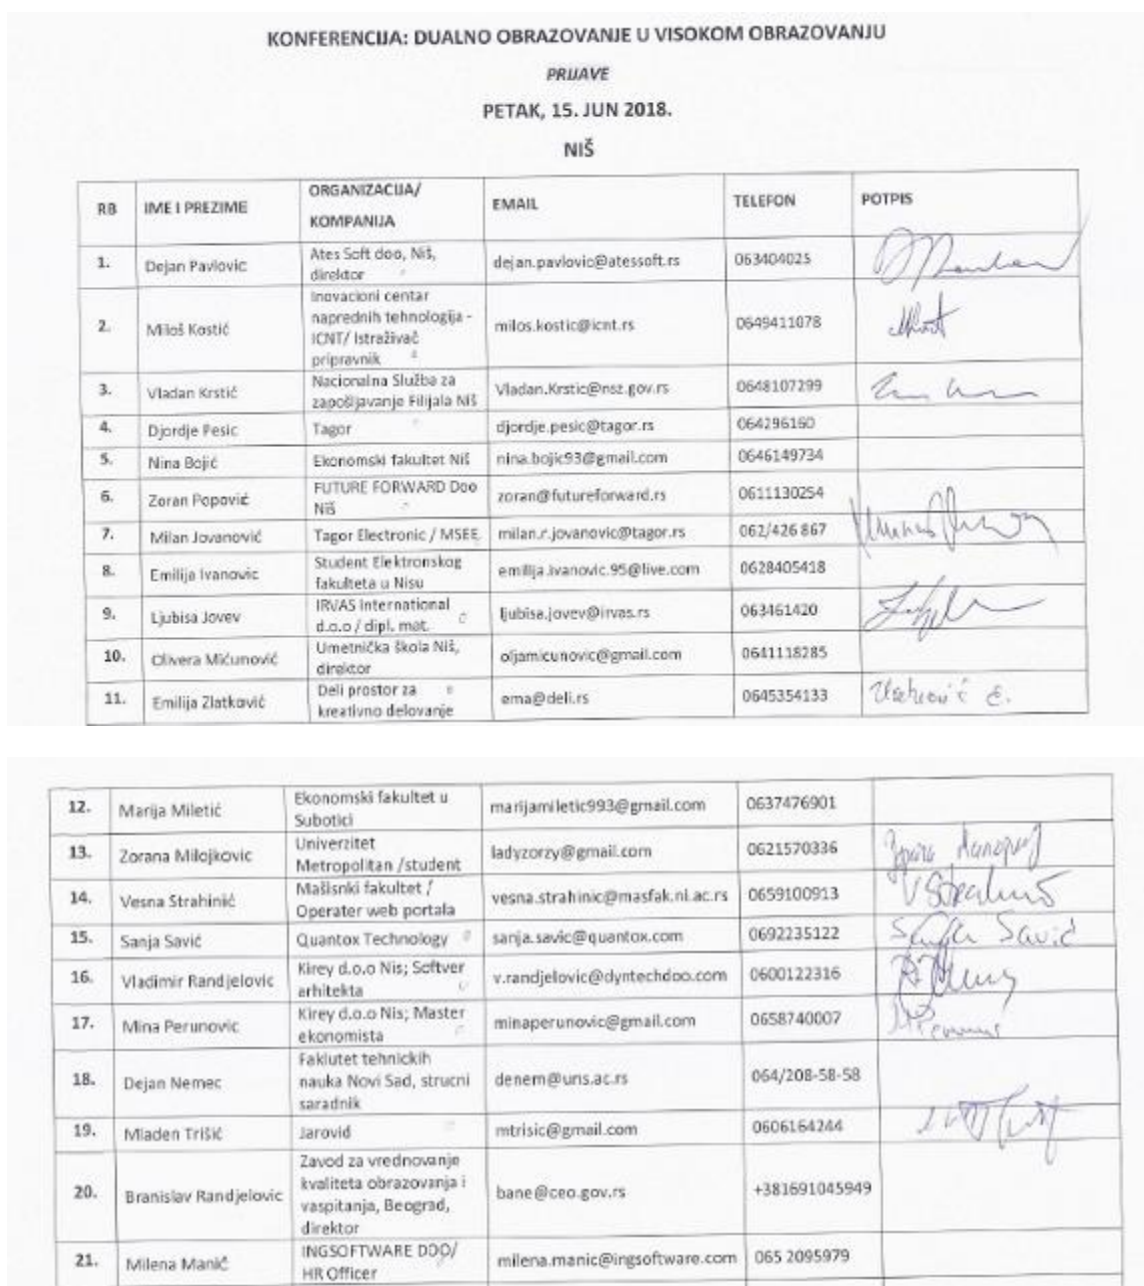 KONFERENCIJA: DUALNO OBRAZOVANJE U VISOKOM OBRAZOVANJU
PRIJAVE
PETAK, 15. JUN 2018.
NIŠ
RB IME I PREZIME ORGANIZACIJA/ KOMPANIJA EMAIL TELEFON POTPIS
1. Dejan Pavlovic Ates Soft doo, Niš, direktor dejan.pavlovic@atessoft.rs 063404025
2. Miloš Kostić Inovacioni centar naprednih tehnologija - ICNT/ Istraživač pripravnik milos.kostic@icnt.rs 0649411078
3. Vladan Krstić Nacionalna Služba za zapošljavanje Filijala Niš Vladan.Krstic@nsz.gov.rs 0648107299
4. Djordje Pesic Tagor djordje.pesic@tagor.rs 064296160
5. Nina Bojić Ekonomski fakultet Niš nina.bojic93@gmail.com 0646149734
6. Zoran Popović FUTURE FORWARD Doo Niš zoran@futureforward.rs 0611130254
7. Milan Jovanović Tagor Electronic / MSEE milan.r.jovanovic@tagor.rs 062/426 867
8. Emilija Ivanovic Student Elektronskog fakulteta u Nisu emilija.ivanovic.95@live.com 0628405418
9. Ljubisa Jovev IRVAS International d.o.o / dipl. mat. ljubisa.jovev@irvas.rs 063461420
10. Olivera Mićunović Umetnička škola Niš, direktor oljamicunovic@gmail.com 0641118285
11. Emilija Zlatković Deli prostor za kreativno delovanje ema@deli.rs 0645354133
12. Marija Miletić Ekonomski fakultet u Subotici marijamiletic993@gmail.com 0637476901
13. Zorana Milojkovic Univerzitet Metropolitan /student ladyzorzy@gmail.com 0621570336
14. Vesna Strahinić Mašisnki fakultet / Operater web portala vesna.strahinic@masfak.ni.ac.rs 0659100913
15. Sanja Savić Quantox Technology sanja.savic@quantox.com 0692235122 Sanja Savić
16. Vladimir Randjelovic Kirey d.o.o Nis; Softver arhitekta v.randjelovic@dyntechdoo.com 0600122316
17. Mina Perunovic Kirey d.o.o Nis; Master ekonomista minaperunovic@gmail.com 0658740007
18. Dejan Nemec Faklutet tehnickih nauka Novi Sad, strucni saradnik denem@uns.ac.rs 064/208-58-58
19. Mladen Trišić Jarovid mtrisic@gmail.com 0606164244
20. Branislav Randjelovic Zavod za vrednovanje kvaliteta obrazovanja i vaspitanja, Beograd, direktor bane@ceo.gov.rs +381691045949
21. Milena Manić INGSOFTWARE DOO/ HR Officer milena.manic@ingsoftware.com 065 2095979